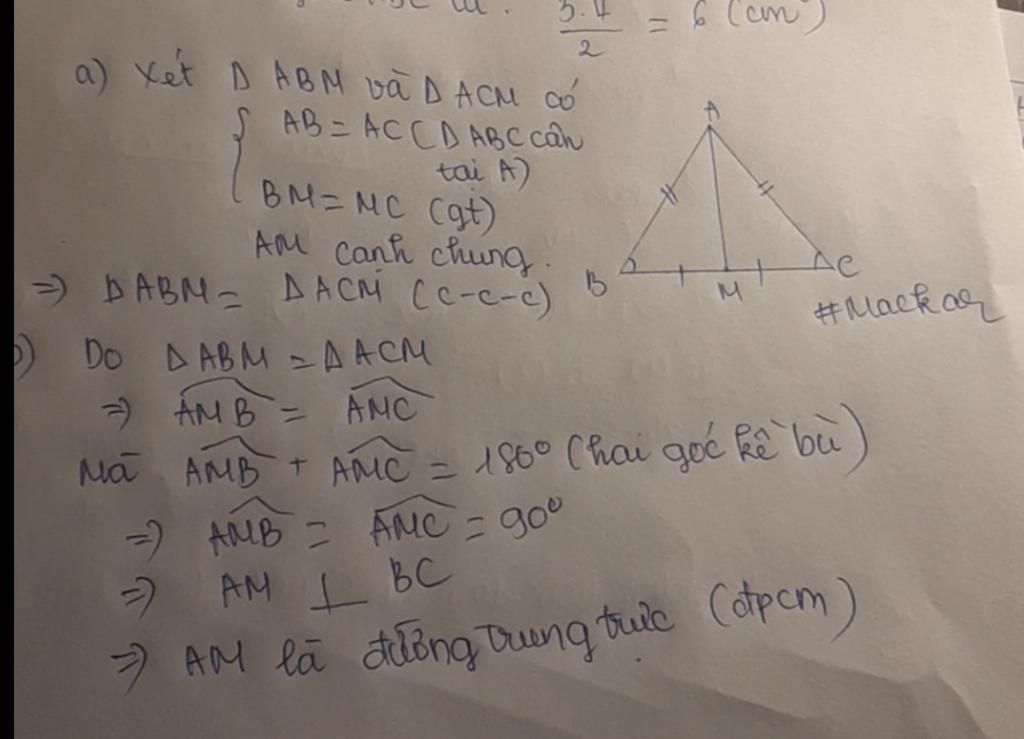 3.4
2
= 6 (cm)
a) Xét Δ ABM và Δ ACM có
AB = AC (Δ ABC cân
tại A)
BM = MC (gt)
AM cạnh chung.
=> Δ ABM = Δ ACM (c-c-c)
A
B
M
C
) Do Δ ABM = Δ ACM
=> AMB = AMC
Mà AMB + AMC = 180° (hai góc kề bù)
=> AMB = AMC = 90°
=> AM ⊥ BC
=> AM là đường trung trực (đpcm)